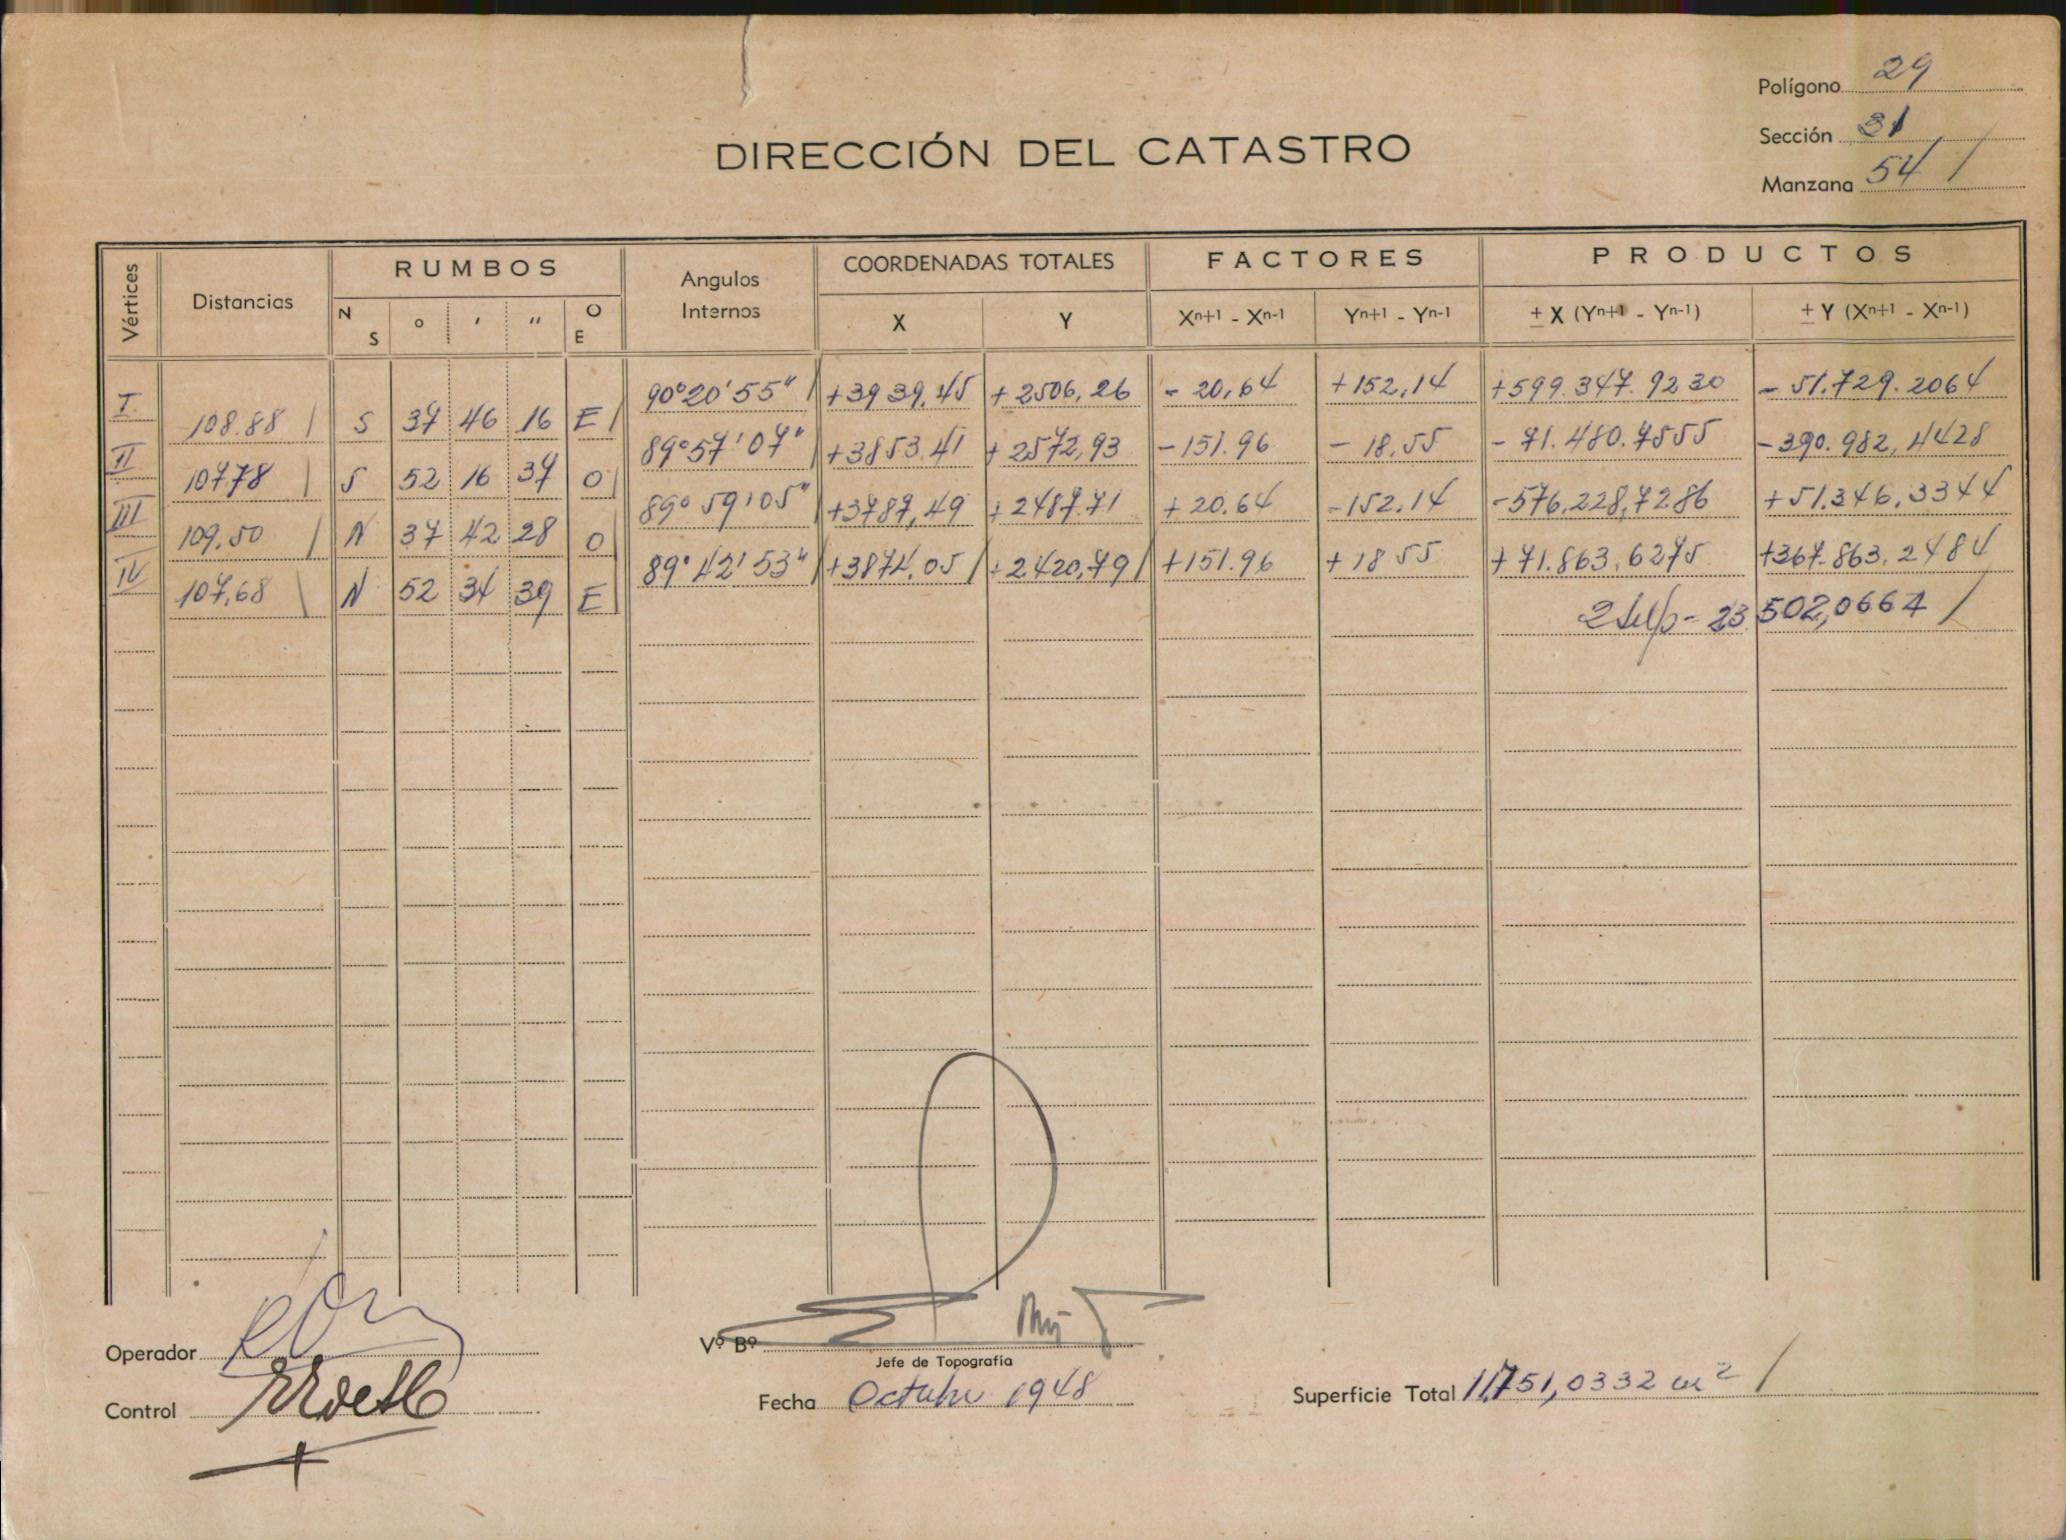 Polígono 29
Sección 31
Manzana 54
DIRECCIÓN DEL CATASTRO
Vértices Distancias RUMBOS Angulos Internos COORDENADAS TOTALES FACTORES PRODUCTOS
N S ° ' " O E X Y Xn+1 - Xn-1 Yn+1 - Yn-1 ± X (Yn+1 - Yn-1) ± Y (Xn+1 - Xn-1)
I 108.88 S 37 46 16 E 90°20'55" +3939,45 +2506,26 - 20,64 +152,14 +599.347.9230 - 51.729.2064
II 107.78 S 52 16 37 O 89°57'07" +3853.41 +2572,93 -151.96 - 18,55 - 71.480.7555 -390.982,4428
III 109,50 N 37 42 28 O 89°59'05" +3787,49 +2487.71 +20.64 -152.14 -576.228,7286 +51.346,3344
IV 107,68 N 52 34 39 E 89°42'53" +3874,05 +2420,79 +151.96 +18 55 +71.863,6275 +367.863.2484
2 Sup- 23.502,0664
Operador
Control
Vº Bº
Jefe de Topografía
Fecha Octubre 1948
Superficie Total 11.751,0332 m²